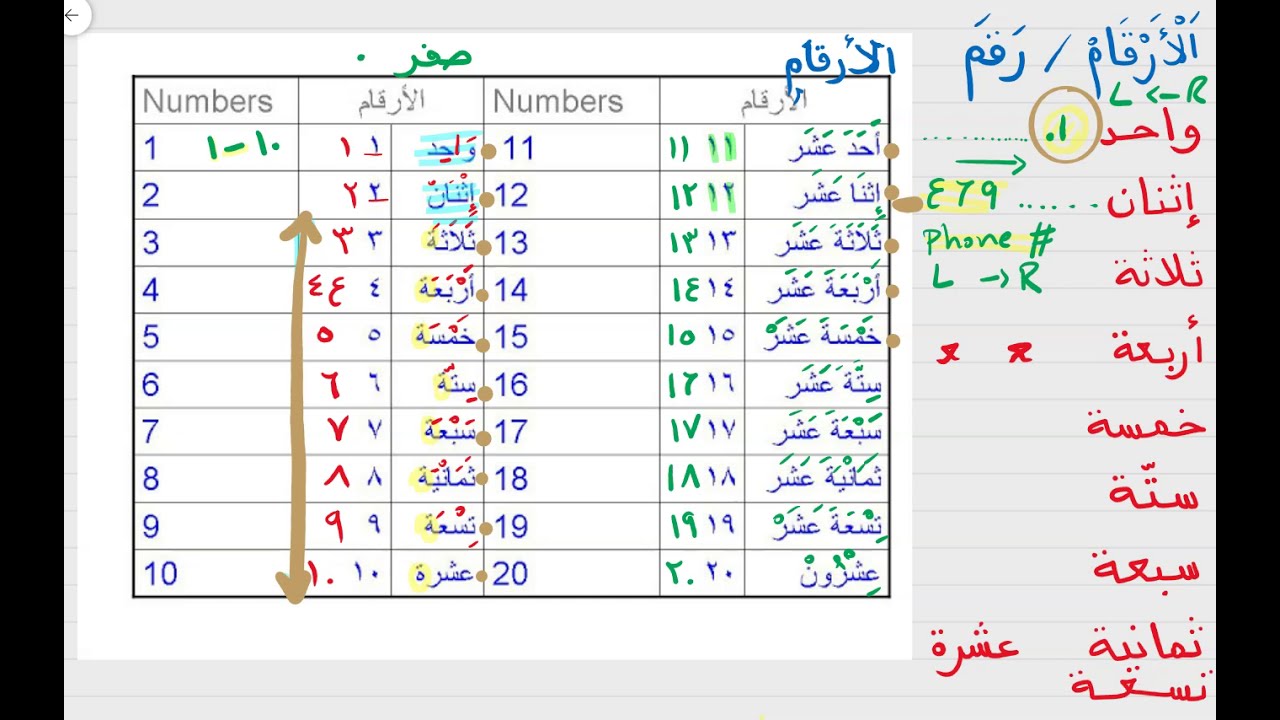 اَلْأَرْقَامْ / رَقَمَ
صفر ٠
الأرقام
L <- R
Numbers الأرقام Numbers الأرقام
1 ١ - ١٠ ١ ١ وَاحِد 11 ١١ ١١ أَحَدَ عَشَر
2 ٢ ٢ إِثْنَانْ 12 ١٢ ١٢ إِثنَا عَشَر
3 ٣ ٣ ثَلَاثَة 13 ١٣ ١٣ ثَلَاثَةَ عَشَر
4 ٤ ع ٤ أَرْبَعَة 14 ١٤ ١٤ أَرْبَعَةَ عَشَر
5 ٥ ٥ خَمْسَة 15 ١٥ ١٥ خَمْسَةَ عَشَرْ
6 ٦ ٦ سِتَّة 16 ١٦ ١٦ سِتَّةَ عَشَر
7 ٧ ٧ سَبْعَة 17 ١٧ ١٧ سَبْعَةَ عَشَر
8 ٨ ٨ ثَمَانْيَة 18 ١٨ ١٨ ثَمَانْيَةَ عَشَر
9 ٩ ٩ تِسْعَة 19 ١٩ ١٩ تِسْعَةَ عَشَرْ
10 ١٠ ١٠ عشرة 20 ٢٠ ٢٠ عِشْرُونْ
واحد ١٠
إثنان ...... ٤٦٩
Phone #
L -> R
ثلاثة
أربعة
خمسة
ستّة
سبعة
ثمانية عشرة
تسعة